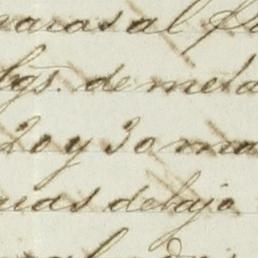 varas al
bgs. de meta
20 y 30 ma
rias debajo